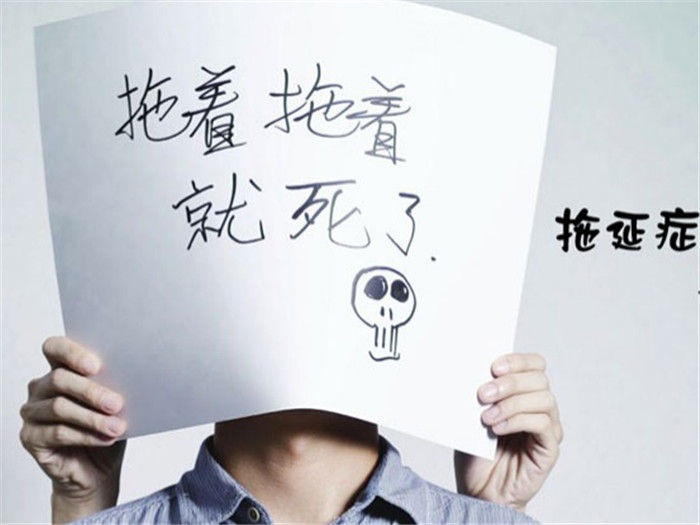 拖着拖着
就死了.
拖延症